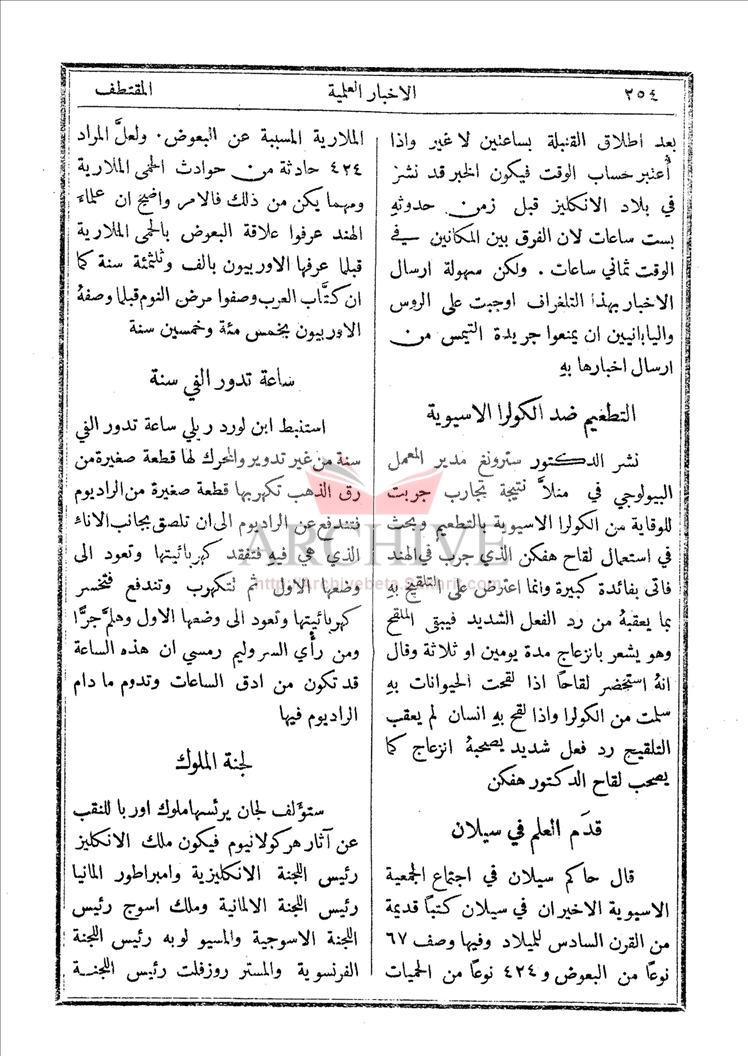 ٢٥٤ الاخبار العلمية المقتطف
بعد اطلاق القنبلة بساعتين لا غير واذا
أُعتبر حساب الوقت فيكون الخبر قد نشر
في بلاد الانكليز قبل زمن حدوثهِ
بست ساعات لان الفرق بين المكانين في
الوقت ثماني ساعات . ولكن سهولة ارسال
الاخبار بهذا التلغراف اوجبت على الروس
واليابانيين ان يمنعوا جريدة التيمس من
ارسال اخبارها بهِ
التطعيم ضد الكولرا الاسيوية
نشر الدكتور سترونغ مدير المعمل
البيولوجي في منلاَّ نتيجة تجارب جربت
للوقاية من الكولرا الاسيوية بالتطعيم وبحث
في استعمال لقاح هفكن الذي جرب في الهند
فاتى بفائدة كبيرة وانما اعترض على التلقيح بهِ
بما يعقبهُ من رد الفعل الشديد فيبقى الملقح
وهو يشعر بانزعاج مدة يومين او ثلاثة وقال
انهُ استحضر لقاحًا اذا لقحت الحيوانات بهِ
سلمت من الكولرا واذا لقح بهِ انسان لم يعقب
التلقيح رد فعل شديد يصحبهُ انزعاج كما
يصحب لقاح الدكتور هفكن
قدَم العلم في سيلان
قال حاكم سيلان في اجتماع الجمعية
الاسيوية الاخير ان في سيلان كتبًا قديمة
من القرن السادس للميلاد وفيها وصف ٦٧
نوعًا من البعوض و ٤٢٤ نوعًا من الحميات
الملارية المسببة عن البعوض . ولعلَّ المراد
٤٢٤ حادثة من حوادث الحمى الملارية
ومهما يكن من ذلك فالامر واضح ان علماء
الهند عرفوا علاقة البعوض بالحمى الملارية
قبلما عرفها الاوربيون بالف وثلثمئة سنة كما
ان كتَّاب العرب وصفوا مرض النوم قبلما وصفهُ
الاوربيون بخمس مئة وخمسين سنة
ساعة تدور الفي سنة
استنبط ابن لورد ريلي ساعة تدور الفي
سنة من غير تدوير والمحرك لها قطعة صغيرة من
رق الذهب تكهربها قطعة صغيرة من الراديوم
فتندفع عن الراديوم الى ان تلصق بجانب الاناء
الذي هي فيه فتفقد كهربائيتها وتعود الى
وضعها الاول ثم تتكهرب وتندفع فتخسر
كهربائيتها وتعود الى وضعها الاول وهلمَّ جرًّا
ومن رأي السر وليم رمسي ان هذه الساعة
قد تكون من ادق الساعات وتدوم ما دام
الراديوم فيها
لجنة الملوك
ستؤلف لجان يرئسها ملوك اوربا للنقب
عن آثار هركولانيوم فيكون ملك الانكليز
رئيس اللجنة الانكليزية وامبراطور المانيا
رئيس اللجنة الالمانية وملك اسوج رئيس
اللجنة الاسوجية والمسيو لوبه رئيس اللجنة
الفرنسوية والمستر روزفلت رئيس اللجنة
ARCHIVE